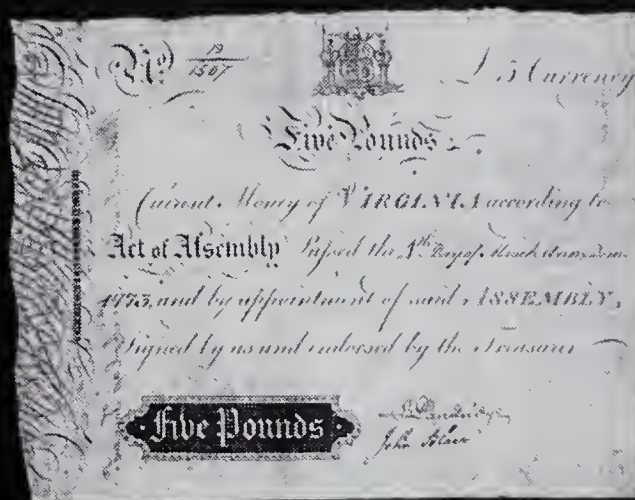 No. 19/1507 £5 Currency
Five Pounds
Current Money of VIRGINIA according to
Act of Assembly Passed the 4th Day of March Anno Dom.
1773, and by appointment of said ASSEMBLY,
Signed by us and endorsed by the Treasurer
Five Pounds
John Blair